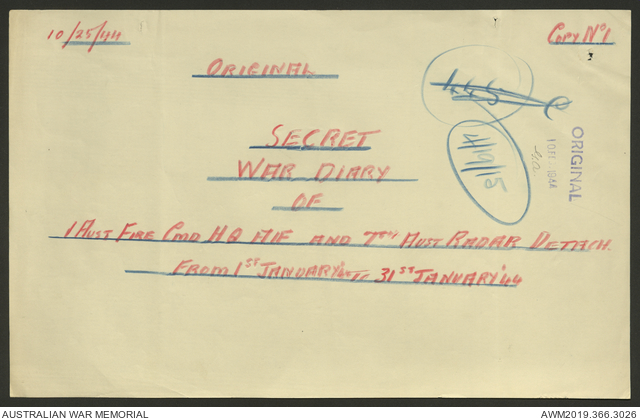 10/25/44
COPY Nº 1
ORIGINAL
4/19/15
ORIGINAL
SECRET
WAR DIARY
OF
1 AUST FIRE CMD HQ AIF AND AUST RADAR DETACH.
FROM 1ST JANUARY '44 TO 31ST JANUARY '44
AUSTRALIAN WAR MEMORIAL
AWM2019.366.3026